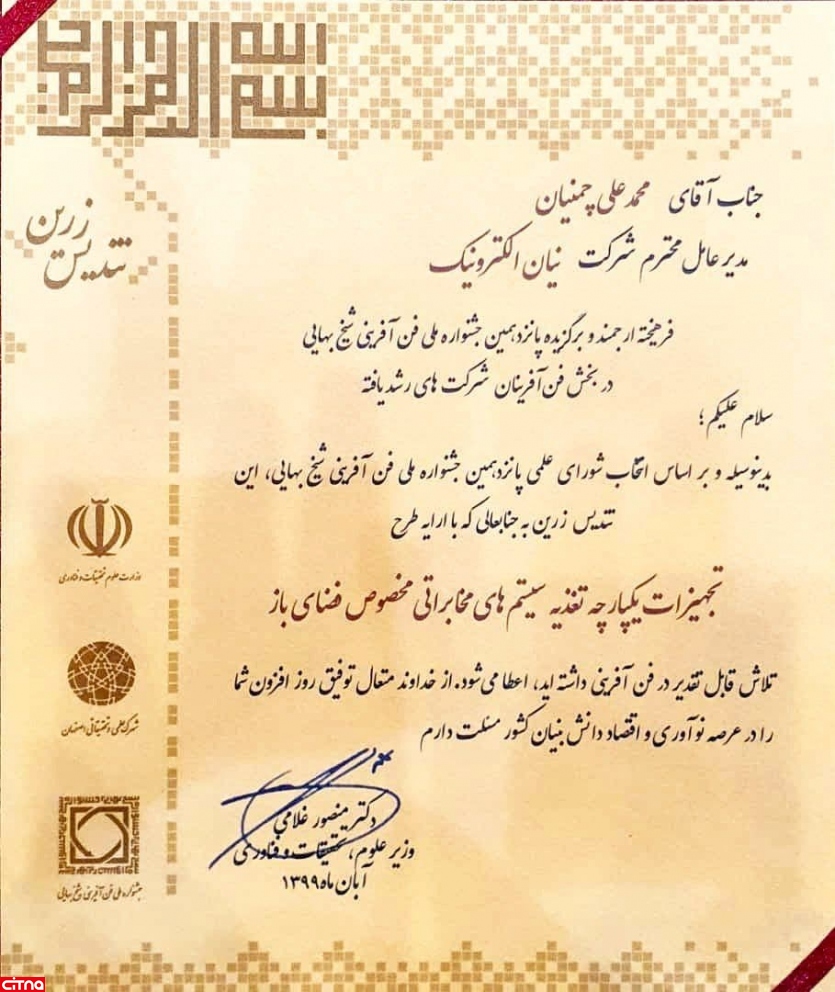 بسم الله الرحمن الرحیم
تندیس زرین
جناب آقای محمد علی چمنیان
مدیر عامل محترم شرکت نیان الکترونیک
فرهیخته ارجمند و برگزیده پانزدهمین جشنواره ملی فن آفرینی شیخ بهایی
در بخش فن آفرینان شرکت های رشد یافته
سلام علیکم؛
بدینوسیله و بر اساس انتخاب شورای علمی پانزدهمین جشنواره ملی فن آفرینی شیخ بهایی، این
تندیس زرین به جنابعالی که با ارایه طرح
تجهیزات یکپارچه تغذیه سیستم های مخابراتی مخصوص فضای باز
تلاش قابل تقدیر در فن آفرینی داشته اید، اعطا می شود. از خداوند متعال توفیق روز افزون شما
را در عرصه نوآوری و اقتصاد دانش بنیان کشور مسئلت دارم
دکتر منصور غلامی
وزیر علوم، تحقیقات و فناوری
آبان ماه ۱۳۹۹
وزارت علوم تحقیقات و فناوری
شهرک علمی و تحقیقاتی اصفهان
جشنواره ملی فن آفرینی شیخ بهایی
CITNA